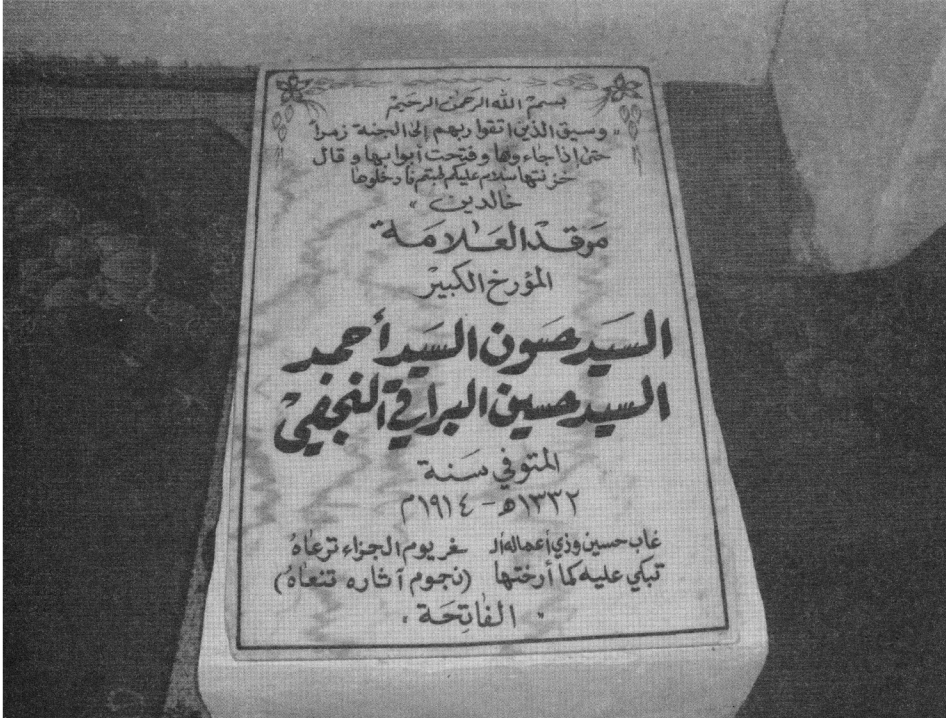 بسم الله الرحمن الرحيم
« وسيق الذين اتقوا ربهم إلى الجنة زمراً
حتى إذا جاءوها وفتحت أبوابها وقال
خزنتها سلام عليكم طبتم فادخلوها
خالدين »
مرقد العلامة
المؤرخ الكبير
السيد حسون السيد أحمد
السيد حسين البراقي النجفي
المتوفي سنة
١٣٣٢هـ - ١٩١٤م
غاب حسين وذي أعماله الـ غر يوم الجزاء ترعاه
تبكي عليه كما أرختها (نجوم آثاره تنعاه)
الفاتحة